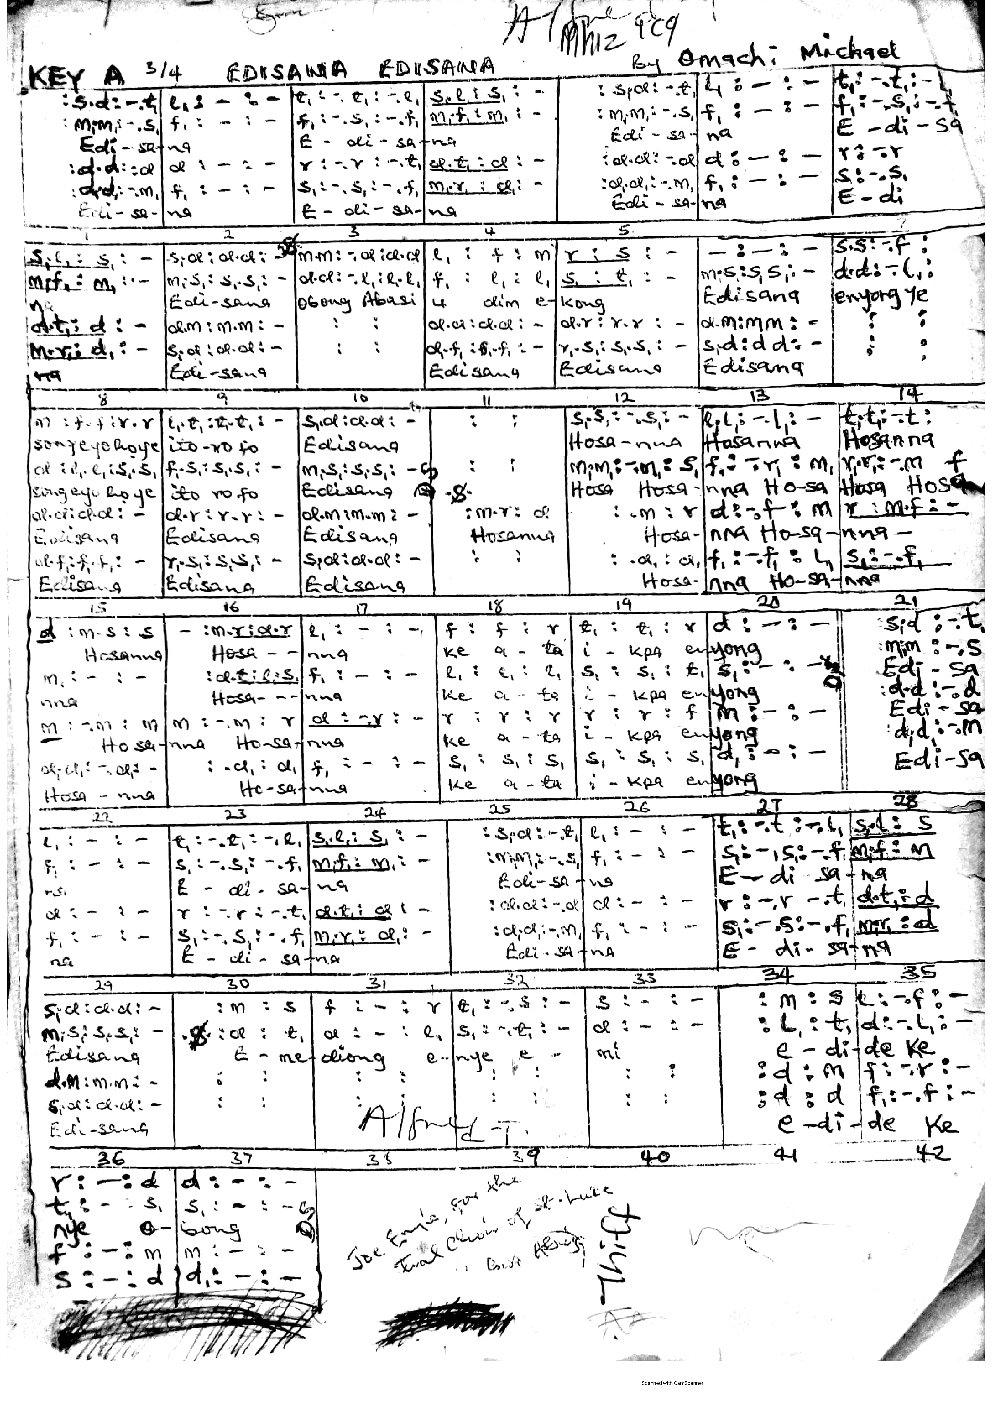 KEY A 3/4 EDISANA EDISANA By Omachi Michael
:s.d:-.t, | l,:-:- | t,:-.t,:-.l, | s,.l,:s,:- | :s,.d:-.t, | l,:-:- | t,:-.t,:-
:m.m,:-.s, | f,:-:- | f,:-.s,:-.f, | m,.f,:m,:- | :m,.m,:-.s, | f,:-:- | f,:-.s,:-.f
Edi-sa-na E-di-sa-na Edi-sa-na E-di-sa
:d.d:-.d | d:-:- | r:-.r:-.t, | d.t,:d:- | :d.d:-.d | d:-:- | r:-.r
:d,.d,:-.m, | f,:-:- | s,:-.s,:-.f, | m,.r,:d,:- | :d,.d,:-.m, | f,:-:- | s:-.s,
Edi-sa-na E-di-sa-na Edi-sa-na E-di
1 2 3 4 5 7
s,.l,:s,:- | s,.d:d.d:- | m.m:-.d:d.d | l,:f:m | r:s:- | -:-:- | s.s:-.f:
m,.f,:m,:- | m,.s,:s,.s,:- | d.d:-.l,:l,.l, | f,:l,:l, | s,:t,:- | m.s:s,.s,:- | d.d:-.l,:
na Edi-sana Obong Abasi u dim e-kong Edisana enyong ye
d.t,:d:- | d.m:m.m:- | : : | d.d:d.d:- | d.r:r.r:- | d.m:m.m:- | : :
m.r,:d,:- | s,.d:d.d:- | : : | d.f,:f,.f,:- | r,.s,:s,.s,:- | s,.d:d.d:- | : :
na Edi-sana Edisana Edisana Edisana
8 9 10 11 12 13 14
m:f.f:r.r | t,.t,:t,.t,:- | s,.d:d.d:- | : : | s,.s,:-.s,:- | l,.l,:-.l,:- | t,.t,:-.t:
songeyohoye ito-ro fo Edisana Hosa-nna Hosanna Hosanna
d:l,.l,:s,.s, | f,.s,:s,.s,:- | m,.s,:s,.s,:- | : : | m,.m,:-.m,:s, | f,:-.r,:m, | r,.r,:-.m f
songeyohoye ito ro fo Edisana Hosa Hosa-nna Ho-sa Hosa Hosa
d.d:d.d:- | d.r:r.r:- | d.m:m.m:- | :m.r:d | :.m:r | d:-.f:m | r:m.f:-
Edisana Edisana Edisana Hosanna Hosa-nna Ho-sa-nna-
d.f,:f,.f,:- | r,.s,:s,.s,:- | s,.d:d.d:- | : : | :.d,:d, | f,:-.f,:l, | s,:-.f,
Edisana Edisana Edisana Hosa-nna Ho-sa-nna
15 16 17 18 19 20 21
d:m.s:s | -:m.r:d.r | l,:-:-. | f:f:r | t,:t,:r | d:-:- | s,.d:-.t,
Hosanna Hosa---nna Ke a-ta i-kpa enyong :m.m:-.s
m,:-:- | :d.t,:l,.s, | f,:-:- | l,:l,:l, | s,:s,:t, | s,:-:- | Edi-sa
nna Hosa---nna Ke a-ta i-kpa enyong :d.d:-.d
m:-.m:m | m:-.m:r | d:-.r:- | r:r:r | r:r:f | m:-:- | Edi-sa
Hosa-nna Ho-sa-nna Ke a-ta i-kpa enyong d,.d,:-.m
d,.d,:-.d,:- | :.d,:d, | f,:-:- | s,:s,:s, | s,:s,:s, | d,:-:- | Edi-sa
Hosa-nna Ho-sa-nna Ke a-ta i-kpa enyong
22 23 24 25 26 27 28
l,:-:- | t,:-.t,:-.l, | s,.l,:s,:- | :s,.d:-.t, | l,:-:- | t,:-.t:-.l, | s,.l,:s
f,:-:- | s,:-.s,:-.f, | m,.f,:m,:- | :m,.m,:-.s, | f,:-:- | s,:-.s,:-.f | m,.f:m
na E-di-sa-na Edi-sa-na E-di sa-na
d:-:- | r:-.r:-.t, | d.t,:d:- | :d.d:-.d | d:-:- | r:-.r-.t, | d.t,:d
f,:-:- | s,:-.s,:-.f, | m,.r,:d,:- | :d,.d,:-.m, | f,:-:- | s,:-.s:-.f, | m,.r,:d
na E-di-sa-na Edi-sa-na E-di-sa-na
29 30 31 32 33 34 35
s,.d:d.d:- | :m:s | f:-:r | t,:-.s,:- | s:-:- | :m:s | l:-.f:-
m,.s,:s,.s,:- | :d:t, | d:-:l, | s,:-.t,:- | d:-:- | :l,:t, | d:-.l,:-
Edisana E-me-diong e-nye e-mi e-di-de Ke
d.m:m.m:- | : : | : : | : : | : : | :d:m | f:-.r:-
s,.d:d.d:- | : : | : : | : : | : : | :d:d | f,:-.f,:-
Edi-sana e-di-de Ke
36 37 38 39 40 41 42
r:-:d | d:-:-
t,:--s, | s,:-:-
nye O-bong
f:-:m | m:-:-
s:-:d | d,:-:-
Scanned with CamScanner